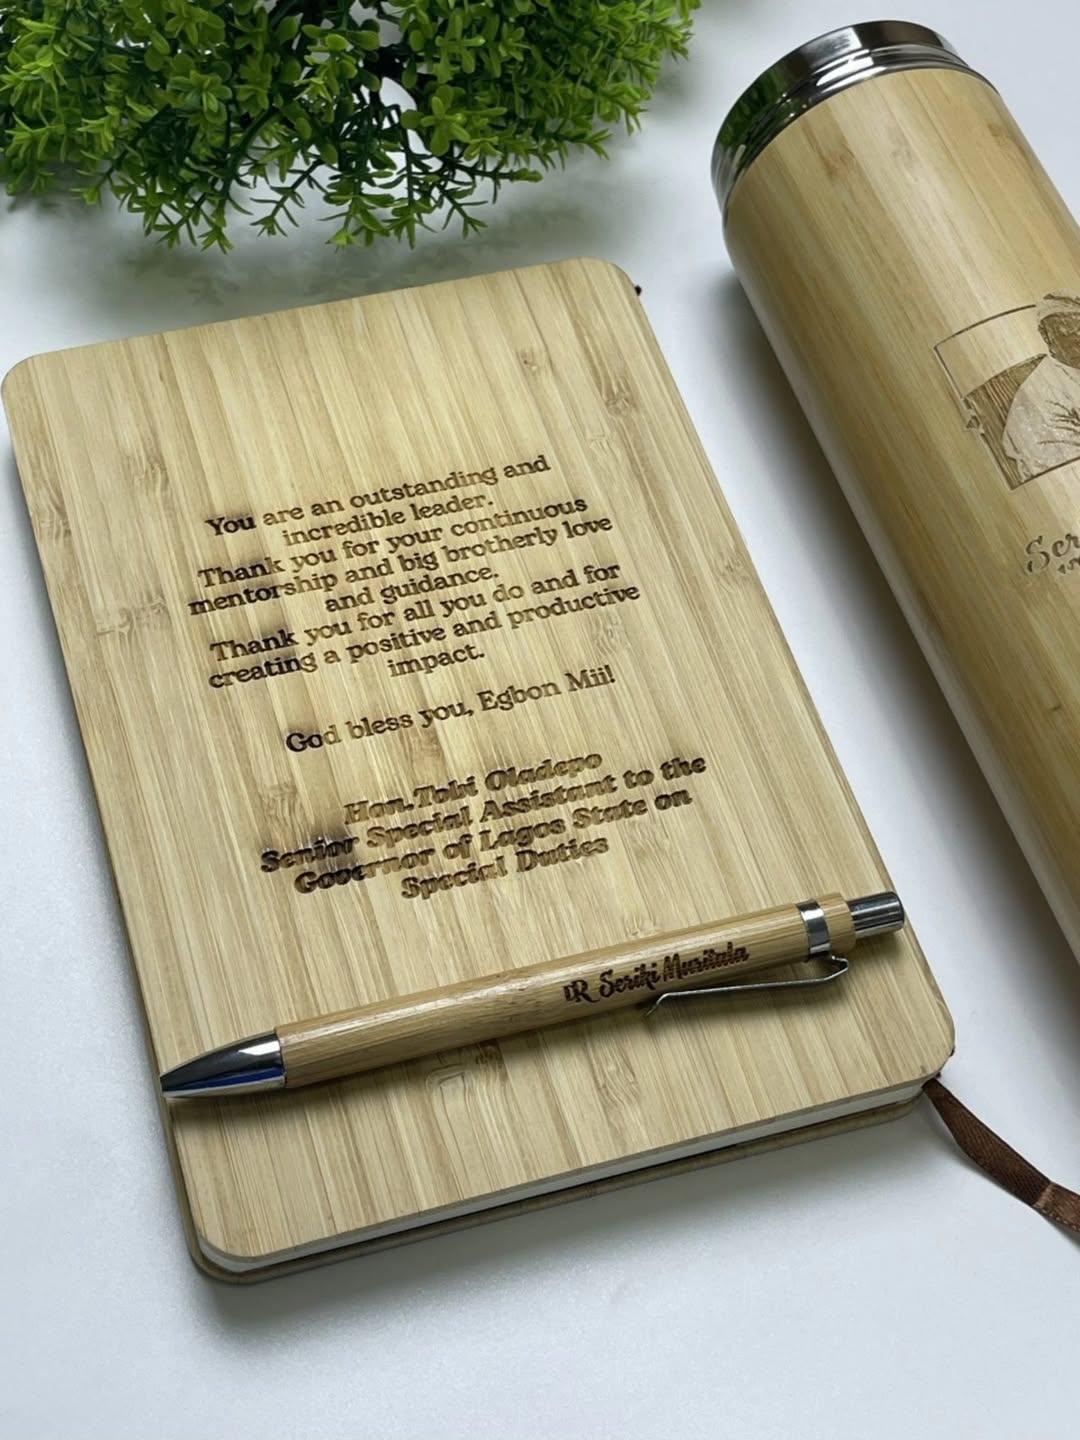 You are an outstanding and
incredible leader.
Thank you for your continuous
mentorship and big brotherly love
and guidance.
Thank you for all you do and for
creating a positive and productive
impact.
God bless you, Egbon Mii!
Hon.Tobi Oladepo
Senior Special Assistant to the
Governor of Lagos State on
Special Duties
DR Seriki Muritala
Ser